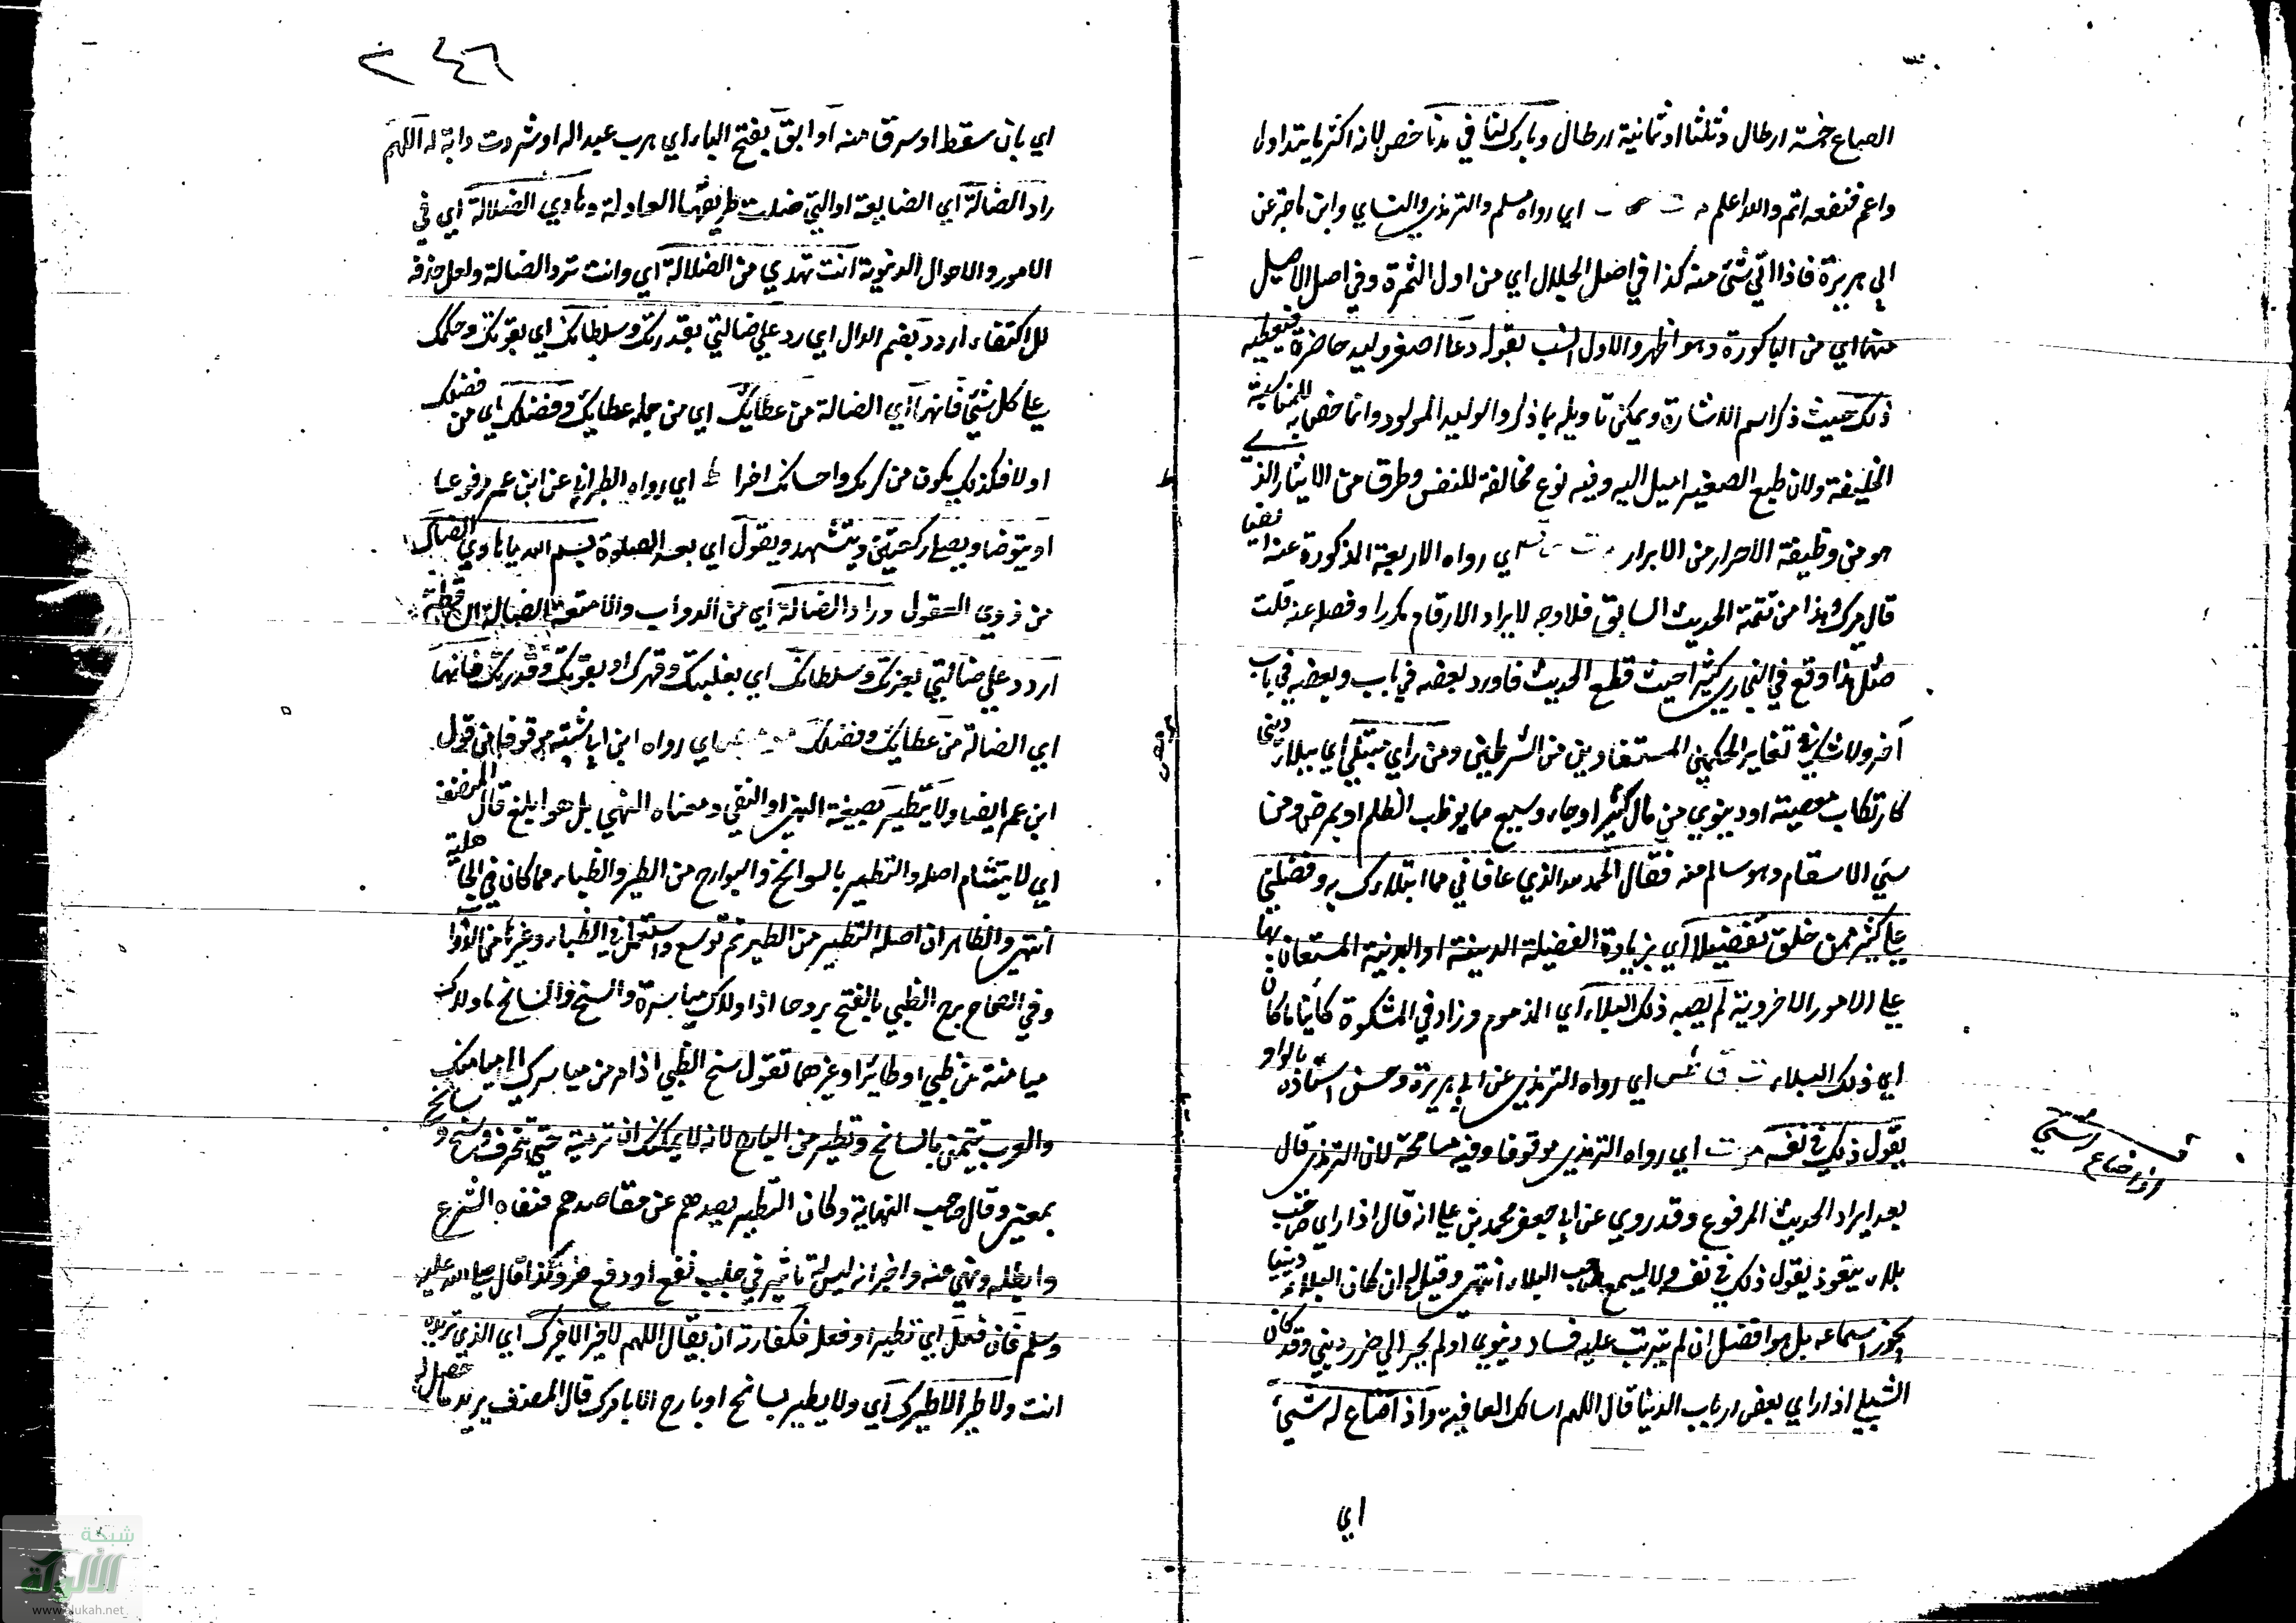 الصاع خمسة ارطال وثلثا اوثمانية ارطال وبارك لنا في مدنا خص لانه اكثر ما يتداول
واعم فنفعه اتم والله اعلم م ت س ق اي رواه مسلم والترمذي والنساي وابن ماجة عن
ابي هريرة فاذا اتي بشئ منه كذا في اصل الجلال اي من اول الثمرة وفي اصل الاصيل
منها اي من الباكورة وهو اظهر والاول انسب بقوله دعا اصغر وليد حاضر فيعطيه
ذلك حيث ذكر اسم الاشارة ويمكن تاويله بما ذكر والوليد المولود وانما خص به للمناسبة
الخليفة ولان طبع الصغير اميل اليه وفيه نوع مخالفة للنفس وطرق من الايثار الذي
هو من وظيفة الاحرار من الابرار م ت س ق اي رواه الاربعة المذكورة عنه ايضا
قال ميرك هذا من تتمة الحديث السابق فلا وجه لايراد الارقام مكررا وفصله عنه قلت
مثل هذا وقع في البخاري كثيرا حيث قطع الحديث فاورد بعضه في باب وبعضه في باب
آخر ولا شك في تغاير الحكمين المستفادين من الشرطين ومن راي مبتلي اي ببلاء ديني
كارتكاب معصية او دنيوي من مال كثير او جاه وسيع مما يوظب الظلم او بمرض من
سيئ الاسقام وهو سالم منه فقال الحمد لله الذي عافاني مما ابتلاك به وفضلني
علي كثير ممن خلق تفضيلا اي بزيادة الفضيلة الدينية او البدنية المستعان بها
علي الامور الاخروية لم يصبه ذلك البلاء اي المذموم وزاد في المشكوة كائنا ما كان
اي ذلك البلاء ت ق طس اي رواه الترمذي عن ابي هريرة وحسن اسناده بالواو
يقول ذلك في نفسه مو ت اي رواه الترمذي موقوفا وفيه مسامحة لان الترمذي قال
بعد ايراد الحديث المرفوع وقد روي عن ابي جعفر محمد بن علي انه قال اذا راي صاحب
بلاء يتعوذ يقول ذلك في نفسه ولا يسمع صاحب البلاء انتهي وقيل ان كان البلاء دينيا
يجوز اسماعه بل هو افضل ان لم يترتب عليه فساد دنيوي او لم يجر الي ضرر ديني وقد كان
الشبلي اذا راي بعض ارباب الدنيا قال اللهم اسالك العافية واذا ضاع له شيئ
اي
اذا ضاع له شيئ
٢٤٦
اي بان سقط او سرق منه او ابق بفتح الباء اي هرب عبد له او شردت دابة له اللهم
راد الضالة اي الضايعة او التي ضلت طريقها العادلة وهادي الضلالة اي في
الامور والاحوال الدنيوية انت تهدي من الضلالة اي وانت ترد الضالة ولعل حذفه
للاكتفاء اردد بضم الدال اي رد علي ضالتي بقدرتك وسلطانك اي بقوتك وحكمك
علي كل شئ فانها اي الضالة من عطايك اي من جملة عطايك وفضلك اي من فضلك
اولا فكذلك يكون من كرمك واحسانك اخرا ط اي رواه الطبراني عن ابن عمر مرفوعا
او يتوضا ويصلي ركعتين ويتشهد ويقول اي بعد الصلوة بسم الله يا هادي الضال
من ذوي العقول وراد الضالة اي من الدواب والامتعة الضالة الساقطة
اردد علي ضالتي بعزتك وسلطانك اي بغلبتك وقهرك او بقوتك وقدرتك فانها
اي الضالة من عطايك وفضلك مو مص اي رواه ابن ابي شيبة موقوفا من قول
ابن عمر ايضا ولا يتطير بصيغة النهي او النفي ومعناه النهي بل هو ابلغ قال المصنف
اي لا يتشام اصله والتطير بالسوانح والبوارح من الطير والظباء مما كان في الجاهلية
انتهي والظاهر ان اصله التطير من الطير ثم توسع واستعمل في الظباء وغيرها من الذوات
وفي الصحاح برح الظبي بالفتح بروحا اذا ولاك مياسرة والسنح والسانح ما ولاك
ميامنة من ظبي او طائر او غيرهما تقول سنح الظبي اذا مر من مياسرك الي ميامنك
والعرب تتيمن بالسانح وتطير من البارح لانه لا يمكنك ان ترميه حتي ينحرف وسنح وسانح
بمعني وقال صاحب النهاية وكان التطير يصدهم عن مقاصدهم فنفاه الشرع
وابطله ونهي عنه واخبر انه ليس له تاثير في جلب نفع او دفع ضر وكذا قال صلي الله عليه
وسلم فان فعل اي تطيرا وفعله فكفارته ان يقال اللهم لا خير الا خيرك اي الذي تريده
انت ولا طير الا طيرك اي ولا يطير بسانح او بارح الا بامرك قال المصنف يريد ما حصل له
شبكة
الألوكة
www.alukah.net